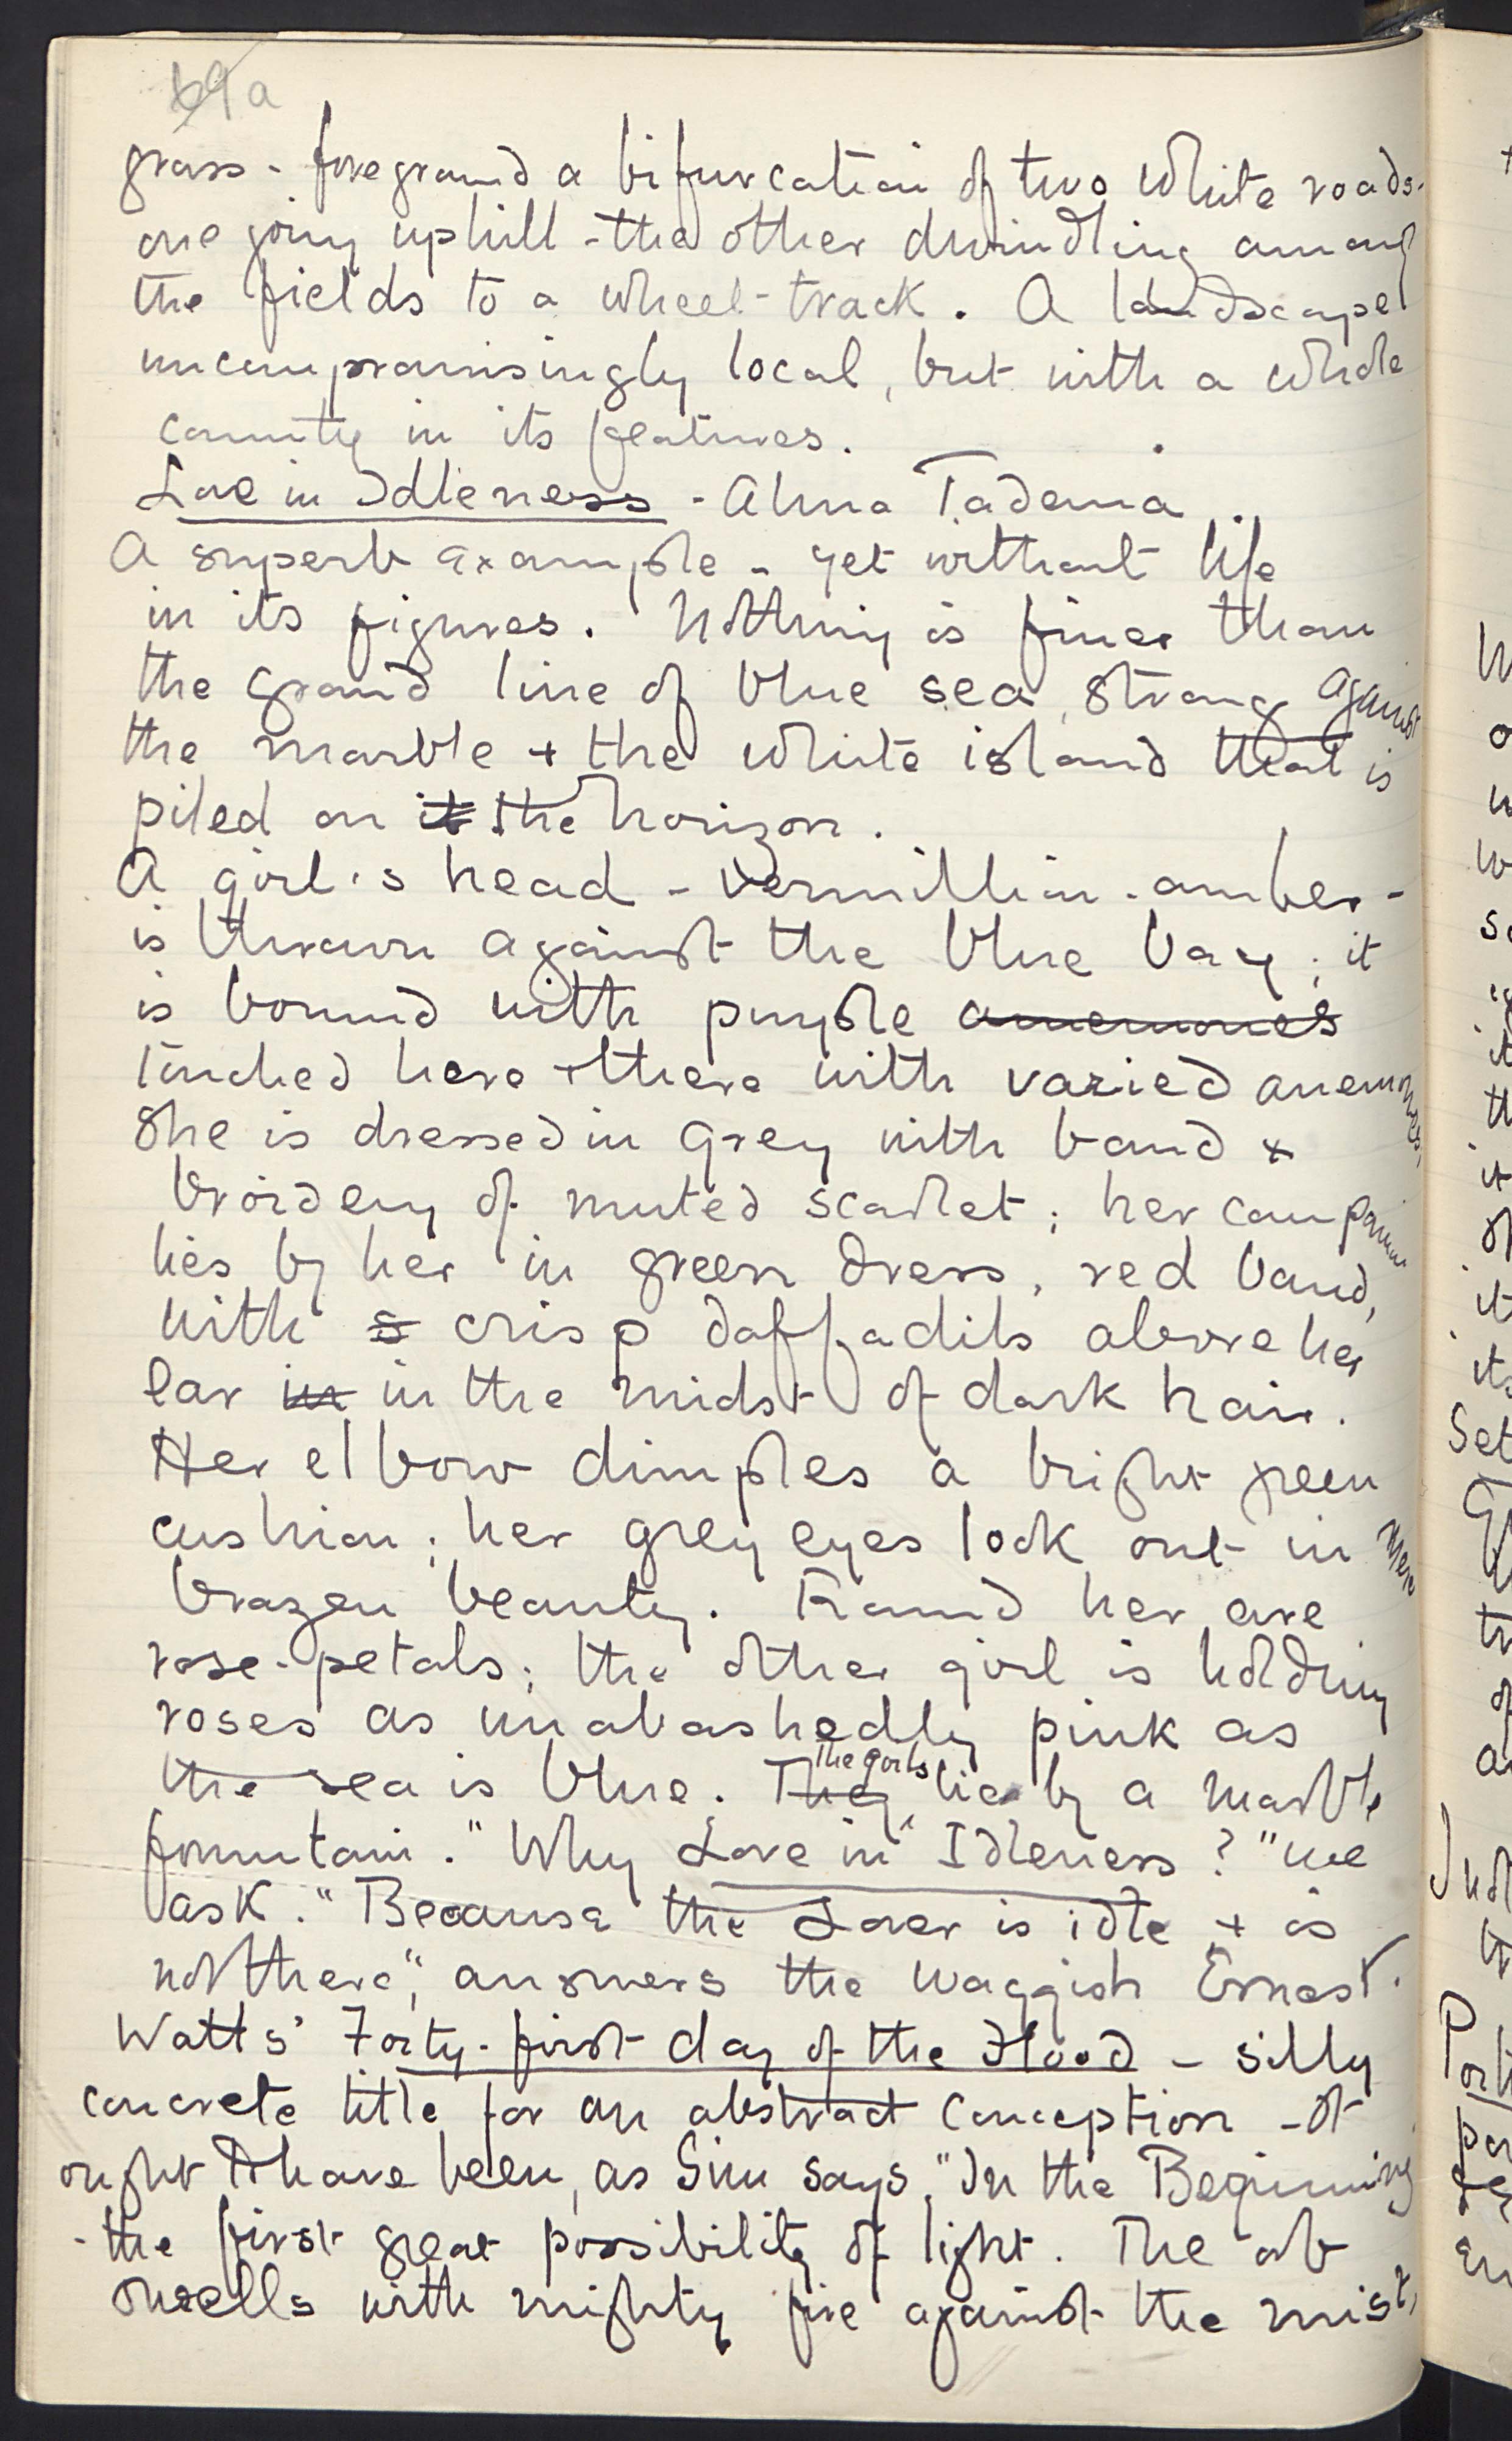 69a
grass - foreground a bifurcation of two white roads -
one going uphill - the other dwindling among
the fields to a wheel-track. A landscape
uncompromisingly local, but with a whole
county in its features.
Love in Idleness - Alma Tadema.
A superb example - yet without life
in its figures. Nothing is finer than
the grand line of blue sea, strong against
the marble + the white island that is
piled on it the horizon.
A girl's head - vermillion - amber -
is thrown against the blue bay; it
is bound with purple anemones
touched here + there with varied anemones.
She is dressed in grey with band +
broidery of muted scarlet; her companion
lies by her in green dress, red band,
with s crisp daffadils above her
ear in in the midst of dark hair.
Her elbow dimples a bright green
cushion; her grey eyes look out in mere
brazen beauty. Round her are
rose-petals; the other girl is holding
roses as unabashedly pink as
the sea is blue. They the girls lie by a marble
fountain. "Why Love in Idleness?" we
ask. "Because the Lover is idle + is
not there", answers the waggish Ernest.
Watts' Forty-first day of the Flood - silly
concrete title for an abstract conception - It
ought to have been, as Sim says, "In the Beginning
- the first great possibility of light. The orb
swells with mighty fire against the mist,